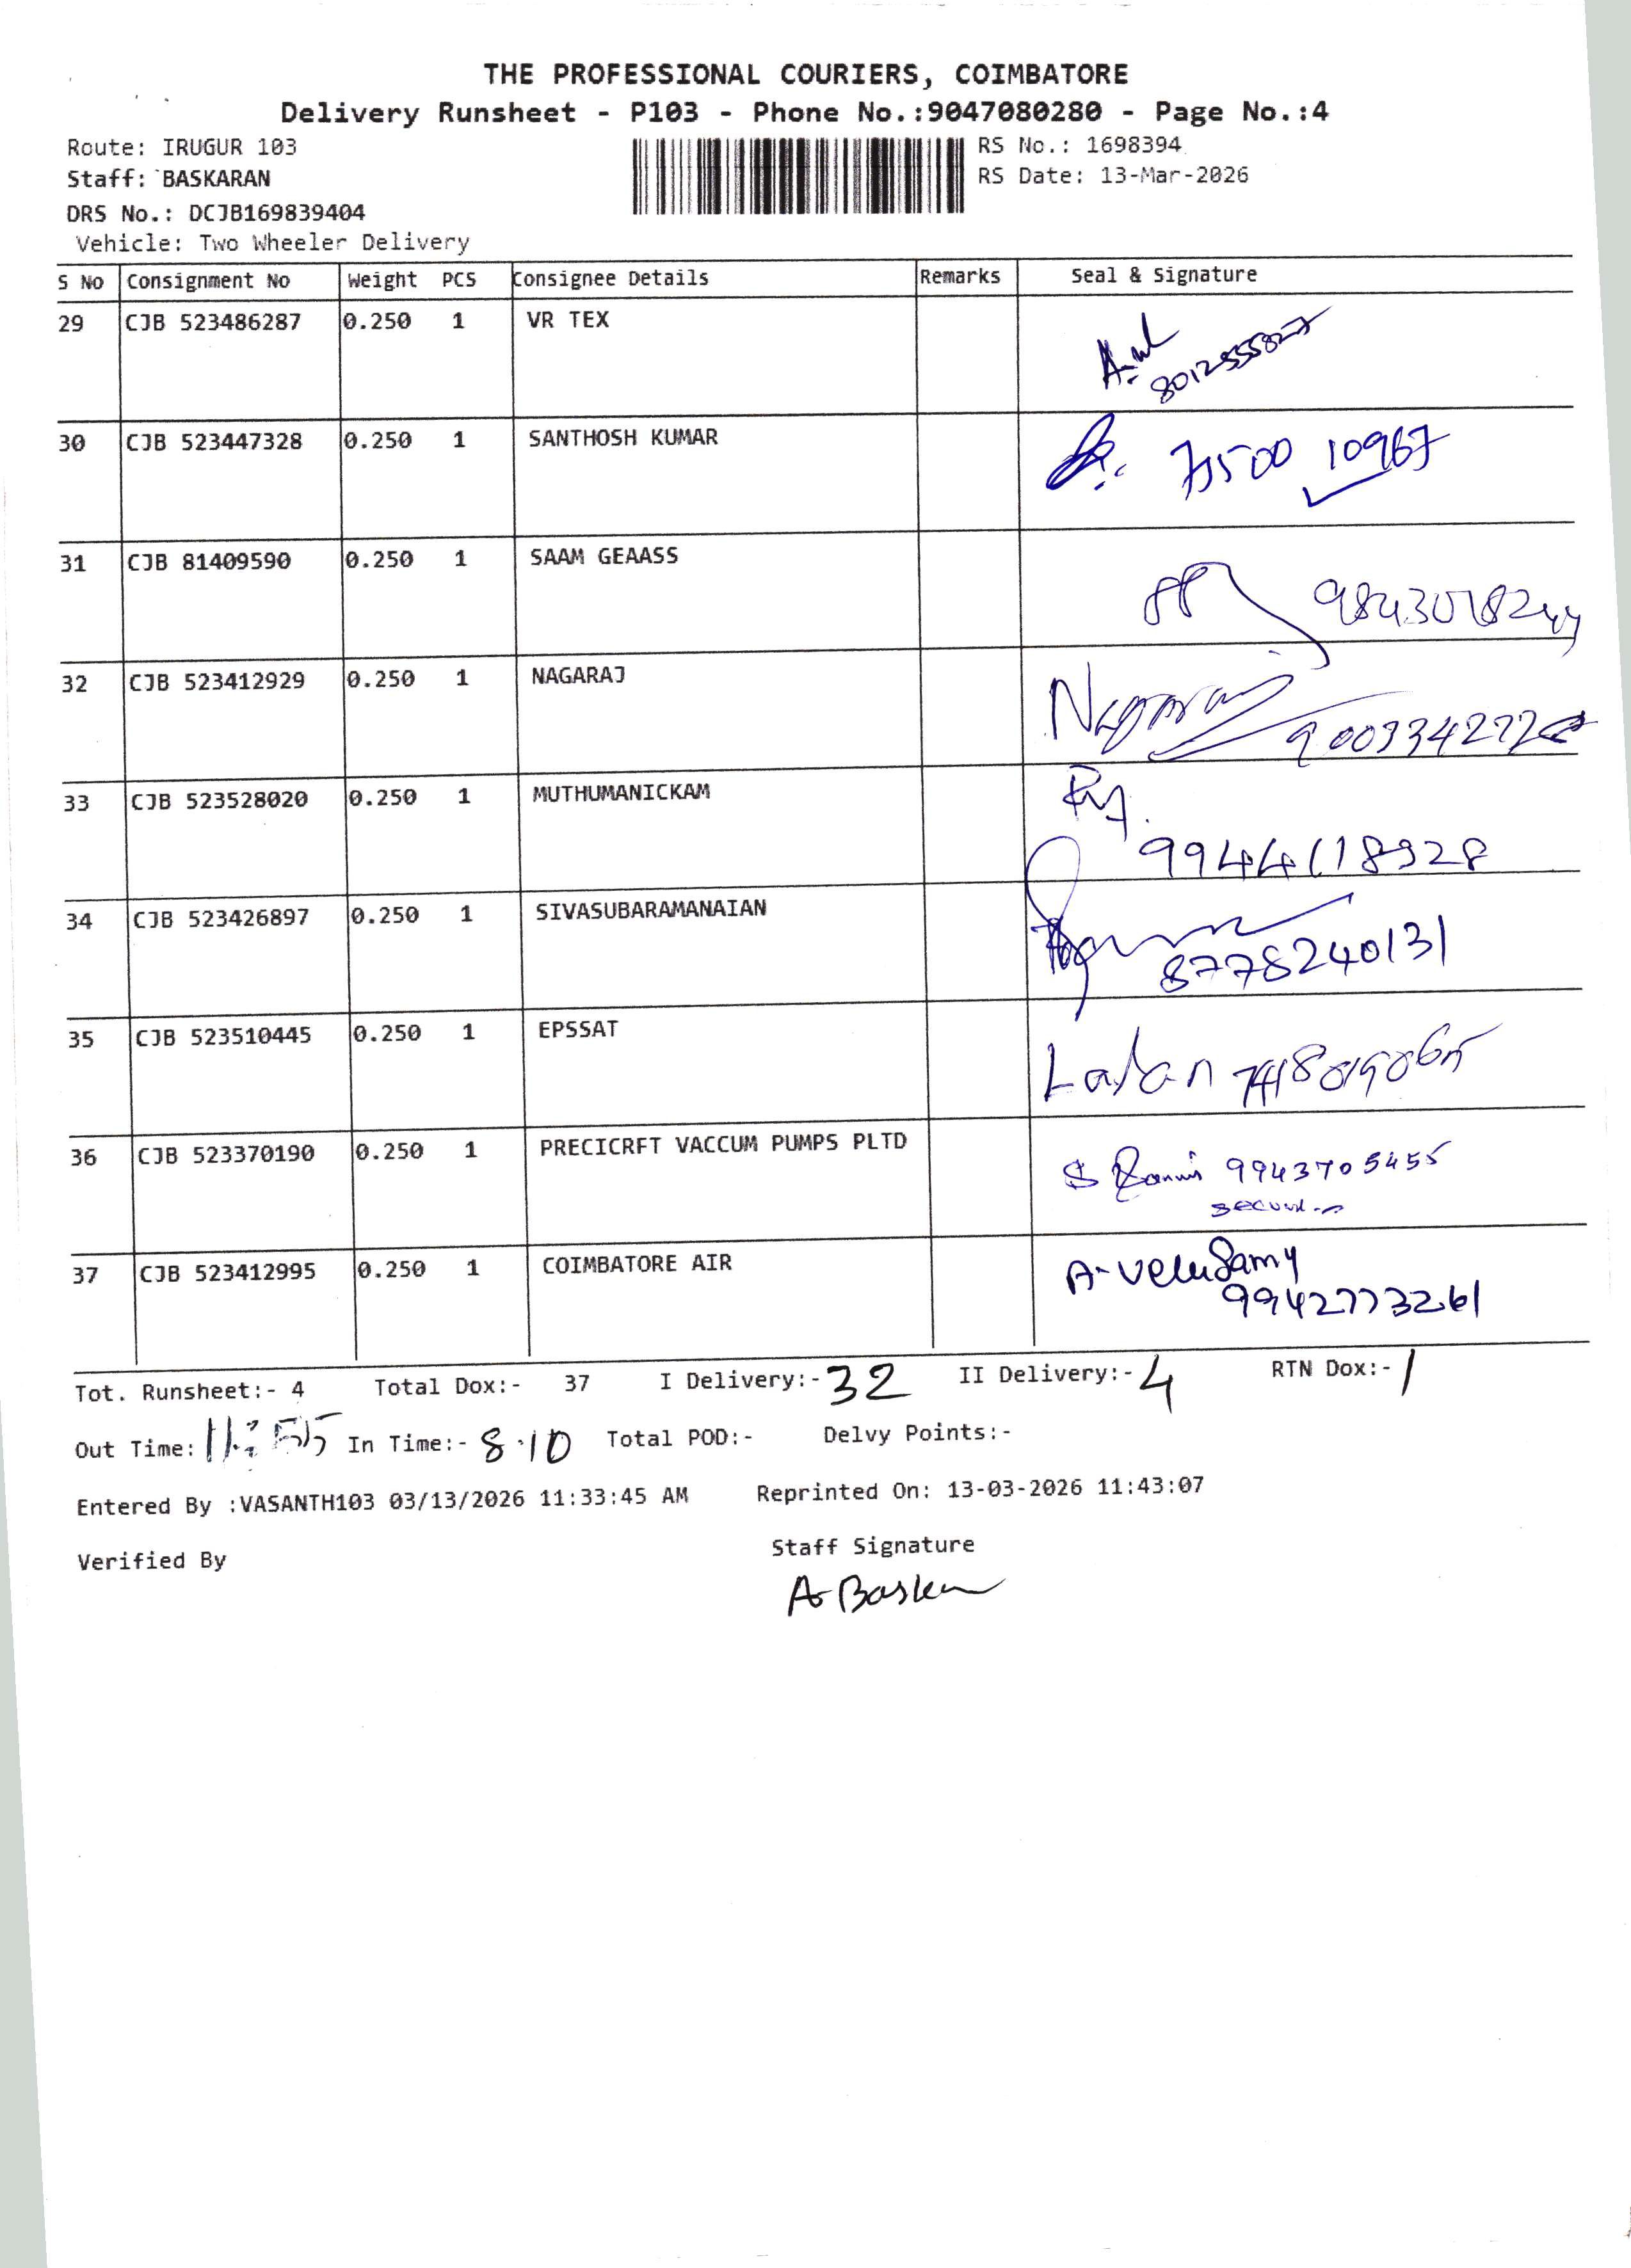 THE PROFESSIONAL COURIERS, COIMBATORE
Delivery Runsheet - P103 - Phone No.:9047080280 - Page No.:4
Route: IRUGUR 103 RS No.: 1698394
Staff: BASKARAN RS Date: 13-Mar-2026
DRS No.: DCJB169839404
Vehicle: Two Wheeler Delivery
S No Consignment No Weight PCS Consignee Details Remarks Seal & Signature
29 CJB 523486287 0.250 1 VR TEX
8012555827
30 CJB 523447328 0.250 1 SANTHOSH KUMAR
10967
31 CJB 81409590 0.250 1 SAAM GEAASS
32 CJB 523412929 0.250 1 NAGARAJ
Nagaraj
33 CJB 523528020 0.250 1 MUTHUMANICKAM
34 CJB 523426897 0.250 1 SIVASUBARAMANAIAN
8778240131
35 CJB 523510445 0.250 1 EPSSAT
36 CJB 523370190 0.250 1 PRECICRFT VACCUM PUMPS PLTD
9943705455
37 CJB 523412995 0.250 1 COIMBATORE AIR
A-Velusamy
9942773261
Tot. Runsheet:- 4 Total Dox:- 37 I Delivery:- 32 II Delivery:- 4 RTN Dox:- 1
Out Time: 11:55 In Time:- 8.10 Total POD:- Delvy Points:-
Entered By :VASANTH103 03/13/2026 11:33:45 AM Reprinted On: 13-03-2026 11:43:07
Verified By Staff Signature
A Baskar